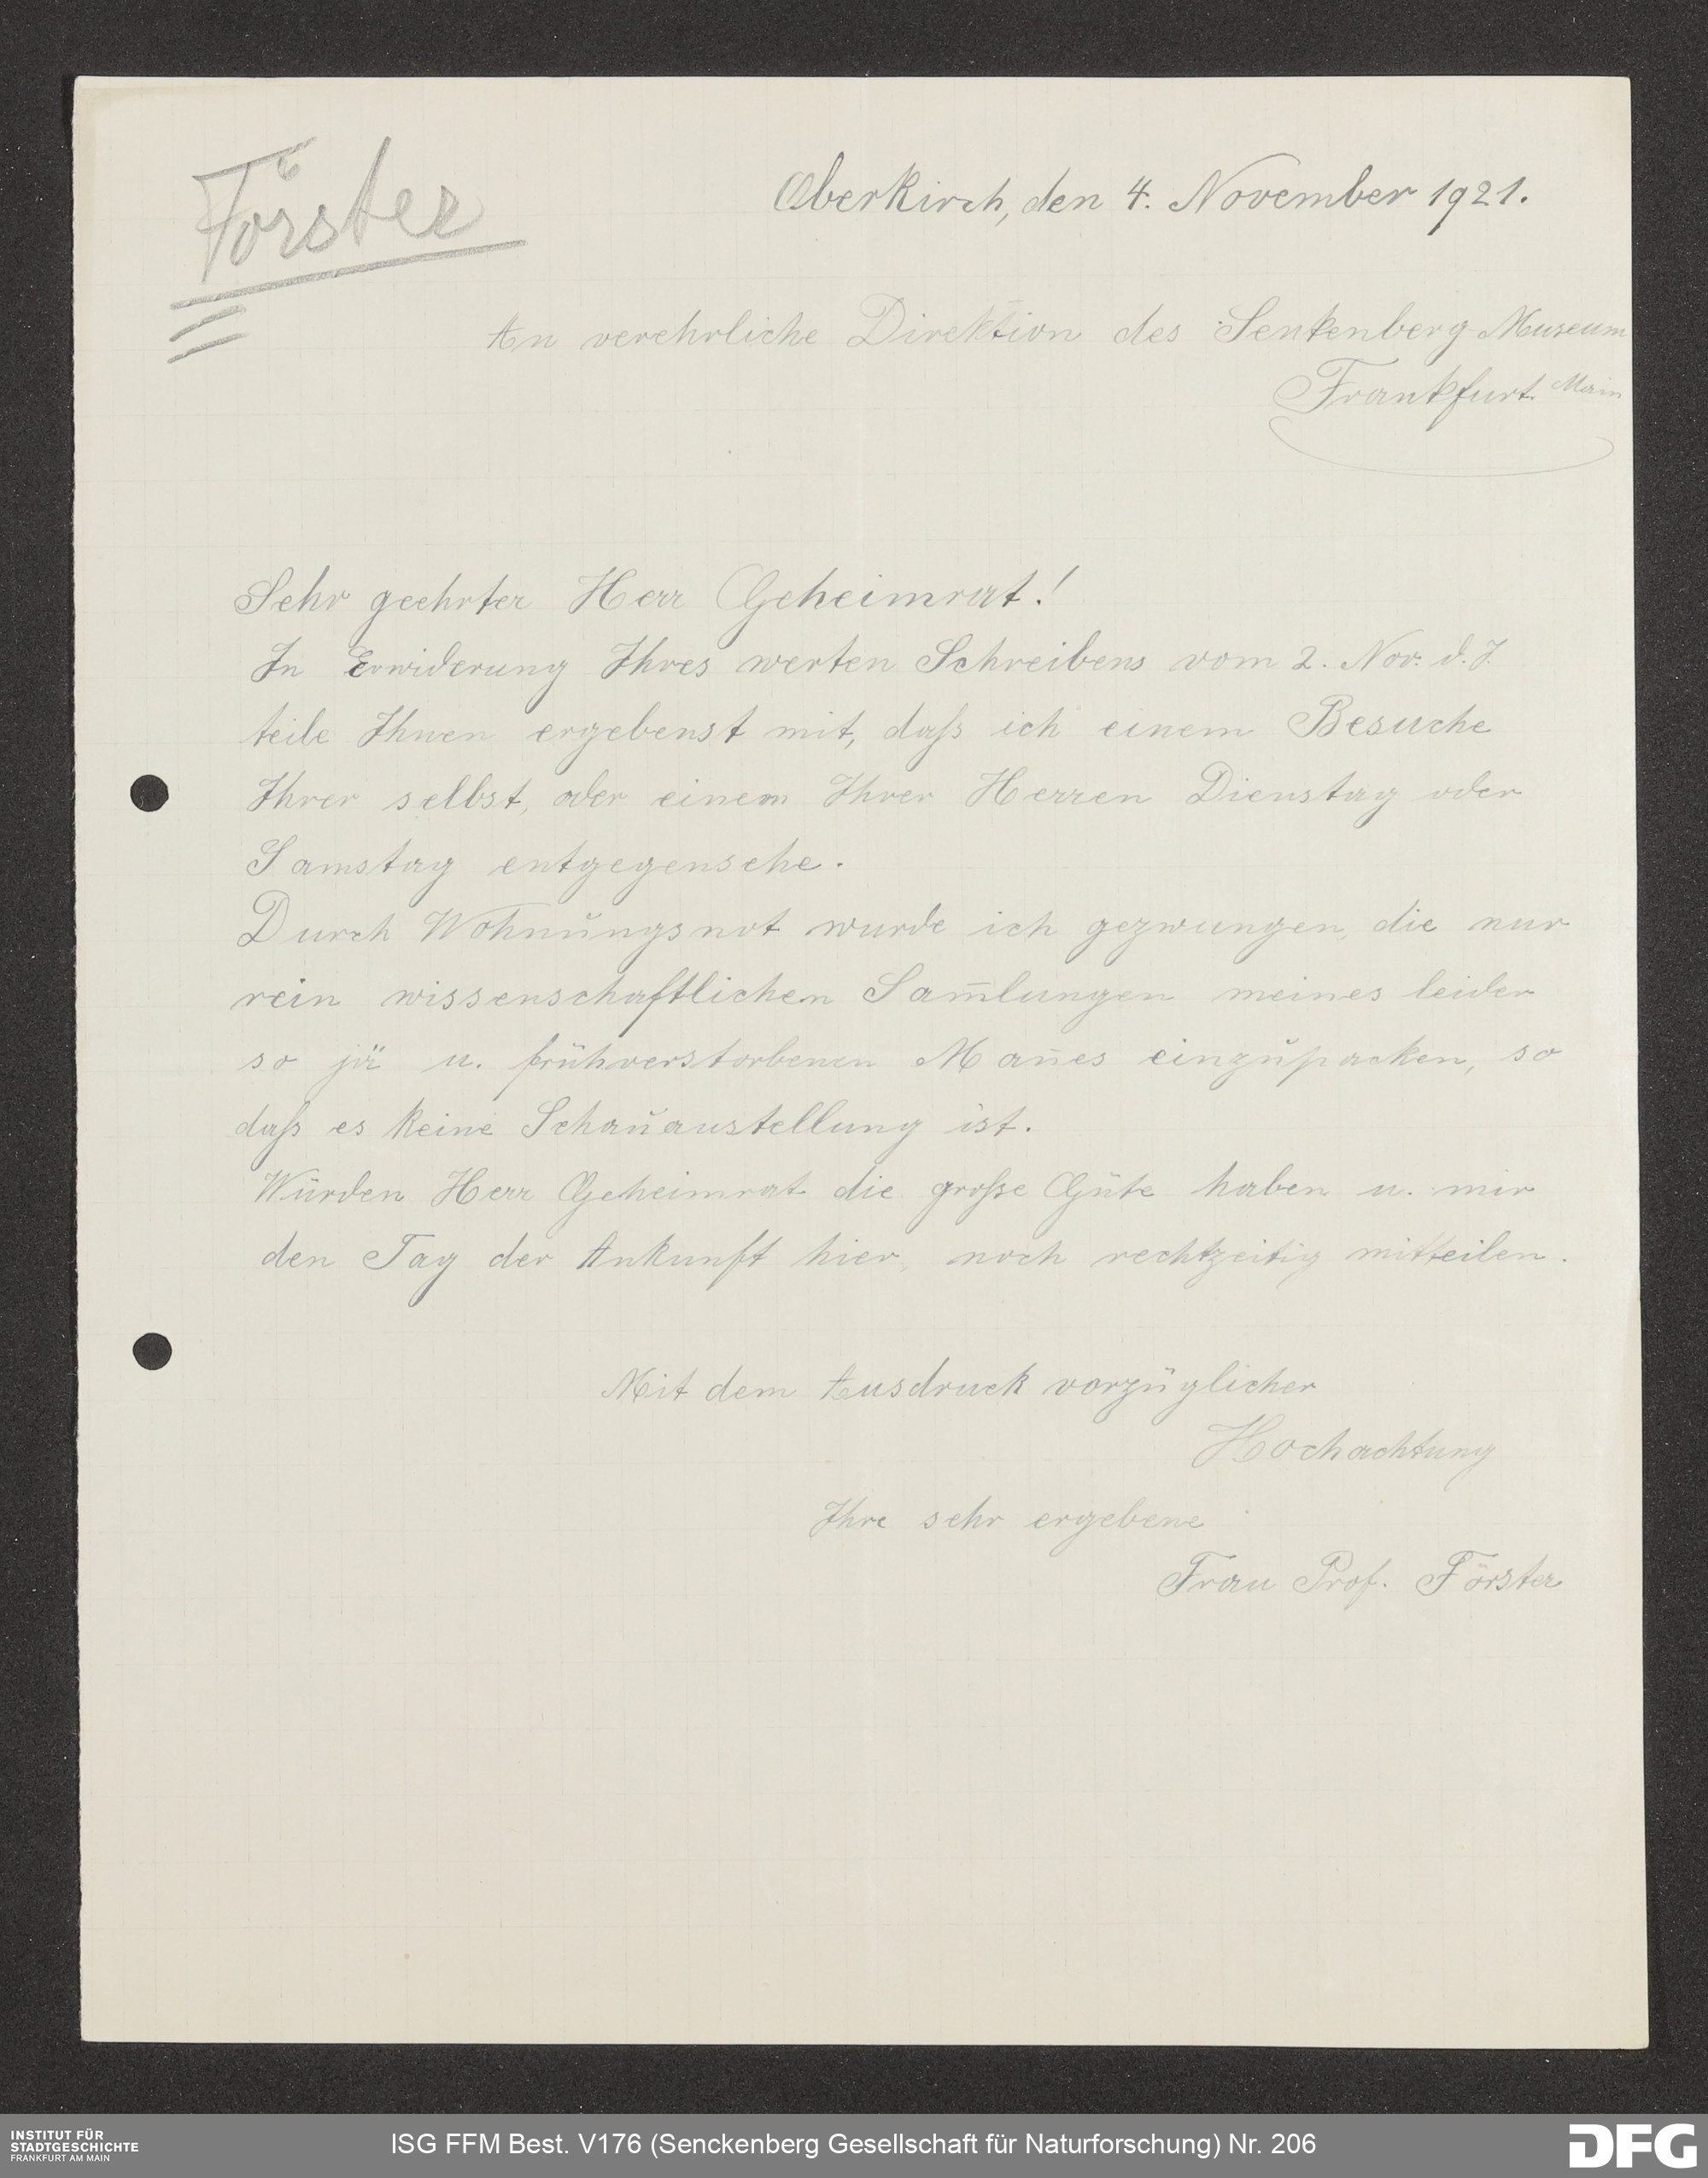 Förster
Oberkirch, den 4. November 1921.
An verehrliche Direktion des Senkenberg Museum
Frankfurt Main
Sehr geehrter Herr Geheimrat!
In Erwiderung Ihres werten Schreibens vom 2. Nov. d. J.
teile Ihnen ergebenst mit, daß ich einem Besuche
Ihrer selbst, oder einem Ihrer Herren Dienstag oder
Samstag entgegensehe.
Durch Wohnungsnot wurde ich gezwungen, die nur
rein wissenschaftlichen Sam̅lungen meines leider
so jä u. frühverstorbenen Man̅es einzupacken, so
daß es keine Schauaustellung ist.
Würden Herr Geheimrat die große Güte haben u. mir
den Tag der Ankunft hier, noch rechtzeitig mitteilen.
Mit dem Ausdruck vorzüglicher
Hochachtung
Ihre sehr ergebene
Frau Prof. Förster
INSTITUT FÜR
STADTGESCHICHTE
FRANKFURT AM MAIN
ISG FFM Best. V176 (Senckenberg Gesellschaft für Naturforschung) Nr. 206
DFG